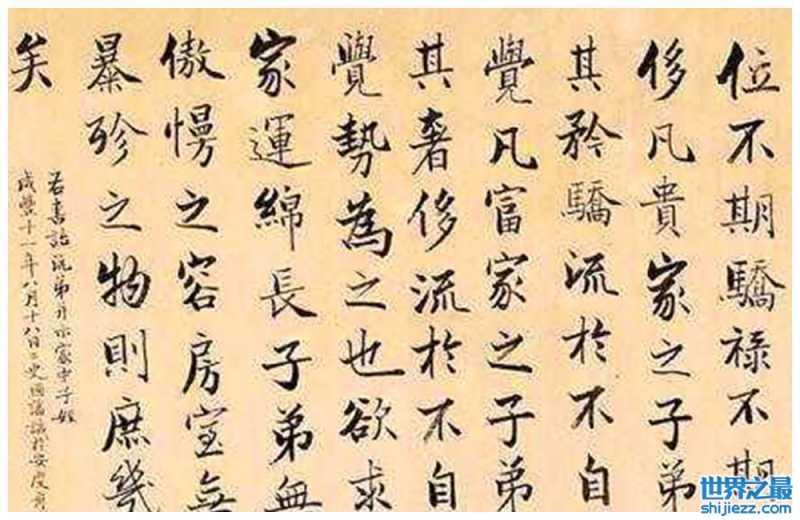 位不期驕祿不期
侈凡貴家之子弟
其矜驕流於不自
覺凡富家之子弟
其奢侈流於不自
覺勢為之也欲求
家運綿長子弟無
傲慢之容房室無
暴殄之物則庶幾
矣
右書詒沅弟并示家中子姪
咸豐十一年八月十八日二更國藩識於安慶
世界之最
shijiezz.com